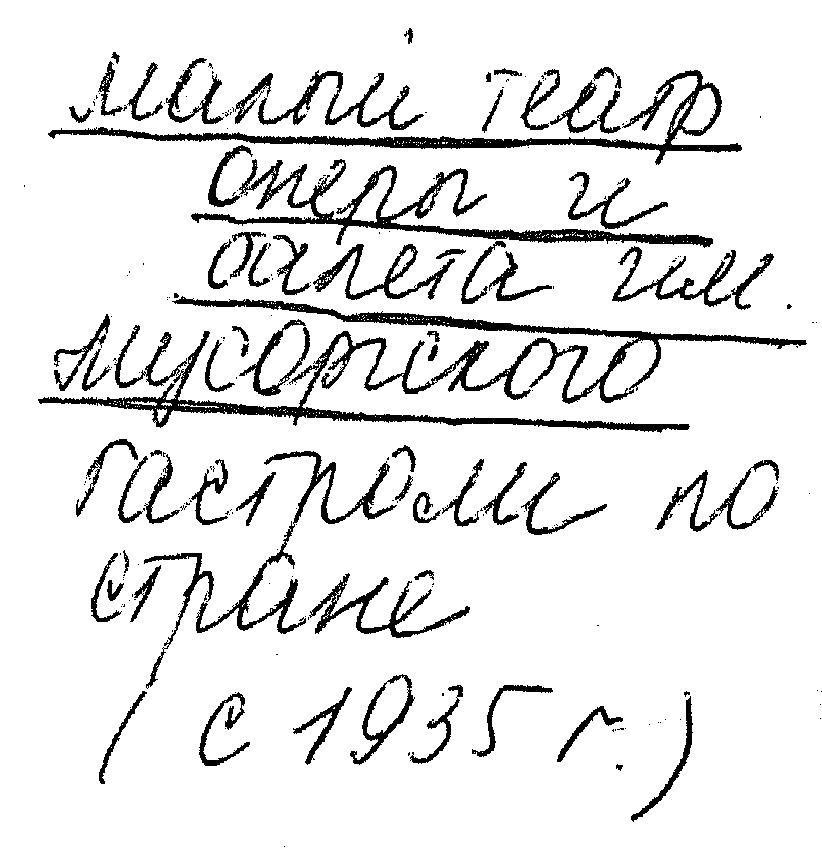 малый театр
оперы и
балета им.
мусоргского
гастроли по
стране
(с 1935 г.)